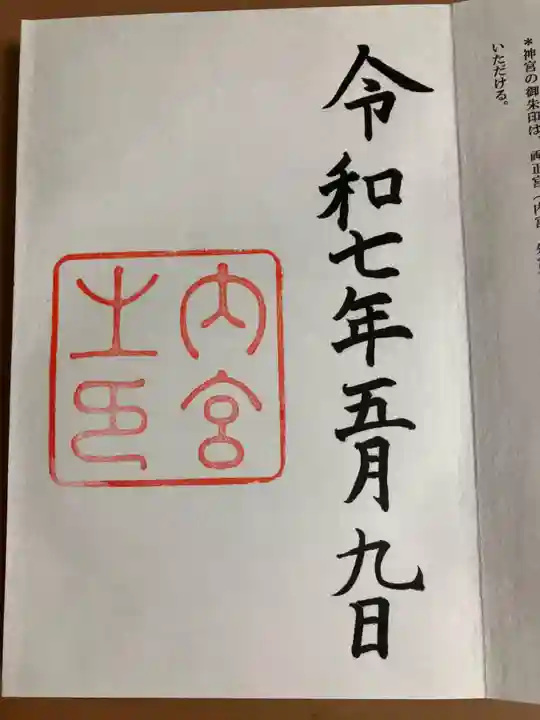 ＊神宮の御朱印は、両正宮（内宮
いただける。
令和七年五月九日
内宮
之印